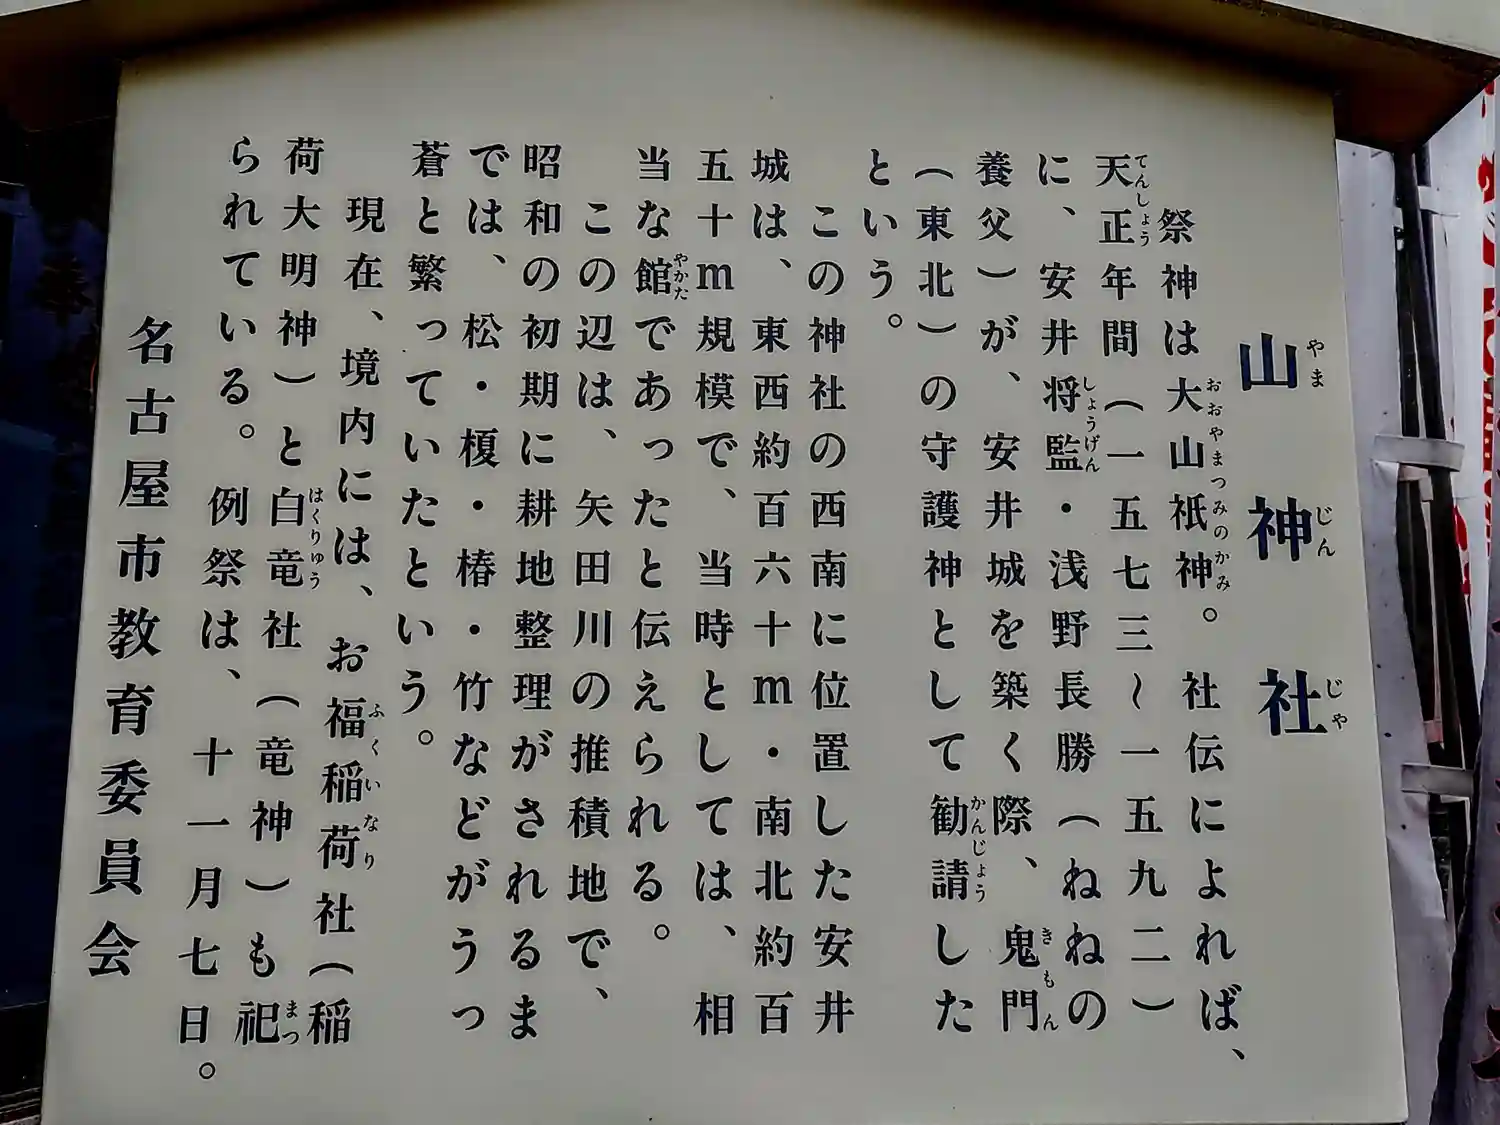 山神社
やまじんじゃ
祭神は大山祇神。社伝によれば、
おおやまつみのかみ
天正年間(一五七三~一五九二)
てんしょう
に、安井将監・浅野長勝(ねねの
しょうげん
養父)が、安井城を築く際、鬼門
きもん
(東北)の守護神として勧請した
かんじょう
という。
この神社の西南に位置した安井
城は、東西約百六十m・南北約百
五十m規模で、当時としては、相
当な館であったと伝えられる。
やかた
この辺は、矢田川の推積地で、
昭和の初期に耕地整理がされるま
では、松・榎・椿・竹などがうっ
蒼と繁っていたという。
現在、境内には、お福稲荷社(稲
ふくいなり
荷大明神)と白竜社(竜神)も祀
はくりゅう
まつ
られている。例祭は、十一月七日。
名古屋市教育委員会